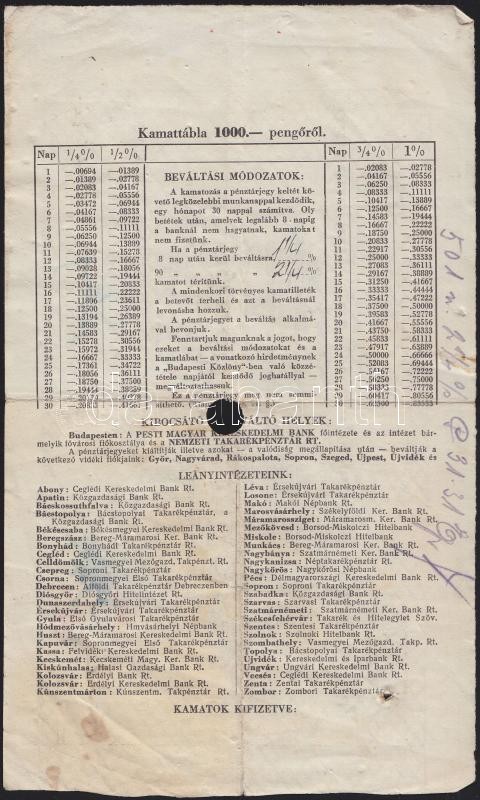 Kamattábla 1000.— pengőről.
Nap 1/4% 1/2%
1 —.00694 —.01389
2 —.01389 —.02778
3 —.02083 —.04167
4 —.02778 —.05556
5 —.03472 —.06944
6 —.04167 —.08333
7 —.04861 —.09722
8 —.05556 —.11111
9 —.06250 —.12500
10 —.06944 —.13889
11 —.07639 —.15278
12 —.08333 —.16667
13 —.09028 —.18056
14 —.09722 —.19444
15 —.10417 —.20833
16 —.11111 —.22222
17 —.11806 —.23611
18 —.12500 —.25000
19 —.13194 —.26389
20 —.13889 —.27778
21 —.14583 —.29167
22 —.15278 —.30556
23 —.15972 —.31944
24 —.16667 —.33333
25 —.17361 —.34722
26 —.18056 —.36111
27 —.18750 —.37500
28 —.19444 —.38889
BEVÁLTÁSI MÓDOZATOK:
A kamatozás a pénztárjegy keltét kö-
vető legközelebbi munkanappal kezdődik,
egy hónapot 30 nappal számítva. Oly
betétek után, amelyek legalább 8 napig
a banknál nem hagyatnak, kamatokat
nem fizetünk.
Ha a pénztárjegy
8 nap után kerül beváltásra 1 1/4 %
90 „ „ „ „ 2 1/4 %
kamatot térítünk.
A mindenkori törvényes kamatilleték
a betevőt terheli és azt a beváltásnál
levonásba hozzuk.
A pénztárjegyet a beváltás alkalmá-
val bevonjuk.
Fenntartjuk magunknak a jogot, hogy
ezeket a beváltási módozatokat és a
kamatlábat — a vonatkozó hirdetménynek
a „Budapesti Közlöny"-ben való közzé-
tétele napjától kezdődő joghatállyal —
változtathassuk.
Ez a pénztárjegy meg nem semmi-
síthető.
Nap 3/4% 1%
1 —.02083 —.02778
2 —.04167 —.05556
3 —.06250 —.08333
4 —.08333 —.11111
5 —.10417 —.13889
6 —.12500 —.16667
7 —.14583 —.19444
8 —.16667 —.22222
9 —.18750 —.25000
10 —.20833 —.27778
11 —.22917 —.30556
12 —.25000 —.33333
13 —.27083 —.36111
14 —.29167 —.38889
15 —.31250 —.41667
16 —.33333 —.44444
17 —.35417 —.47222
18 —.37500 —.50000
19 —.39583 —.52778
20 —.41667 —.55556
21 —.43750 —.58333
22 —.45833 —.61111
23 —.47917 —.63889
24 —.50000 —.66666
25 —.52083 —.69444
26 —.54167 —.72222
27 —.56250 —.75000
28 —.58333 —.77778
KIBOCSÁTÓ BEVÁLTÓ HELYEK:
Budapesten: A PESTI MAGYAR KERESKEDELMI BANK főintézete és az intézet bár-
melyik fővárosi fiókosztálya és a NEMZETI TAKARÉKPÉNZTÁR RT.
A pénztárjegyeket kiállítják illetve azokat — a valódiság megállapítása után — beváltják a
következő vidéki fiókjaink: Győr, Nagyvárad, Rákospalota, Sopron, Szeged, Újpest, Újvidék és
LEÁNYINTÉZETEINK:
Abony: Ceglédi Kereskedelmi Bank Rt.
Apatin: Közgazdasági Bank Rt.
Bácskossuthfalva: Közgazdasági Bank Rt.
Bácstopolya: Bácstopolyai Takarékpénztár, a
Közgazdasági Bank Rt.
Békéscsaba: Békésmegyei Kereskedelmi Bank Rt.
Beregszász: Bereg-Máramarosi Ker. Bank Rt.
Bonyhád: Bonyhádi Takarékpénztár Rt.
Cegléd: Ceglédi Kereskedelmi Bank Rt.
Celldömölk: Vasmegyei Mezőgazd. Takpénzt. Rt.
Csepreg: Soproni Takarékpénztár
Csorna: Sopronmegyei Első Takarékpénztár
Debrecen: Alföldi Takarékpénztár Debreczenben
Diósgyőr: Diósgyőri Hitelintézet Rt.
Dunaszerdahely: Érsekújvári Takarékpénztár
Érsekújvár: Érsekújvári Takarékpénztár
Gyula: Első Gyulavárosi Takarékpénztár
Hódmezővásárhely: Hmvásárhelyi Népbank
Huszt: Bereg-Máramarosi Kereskedelmi Bank Rt.
Kapuvár: Sopronmegyei Első Takarékpénztár
Kassa: Felvidéki Kereskedelmi Bank Rt.
Kecskemét: Kecskeméti Magy. Ker. Bank Rt.
Kiskúnhalas: Halasi Gazdasági Bank Rt.
Kolozsvár: Erdélyi Bank Rt.
Kolozsvár: Erdélyi Kereskedelmi Bank Rt.
Kúnszentmárton: Kúnszentm. Takpénztár Rt.
Léva: Érsekújvári Takarékpénztár
Losonc: Érsekújvári Takarékpénztár
Makó: Makói Népbank Rt.
Marosvásárhely: Székelyföldi Ker. Bank Rt.
Máramarossziget: Máramarosm. Ker. Bank Rt.
Mezőkövesd: Borsod-Miskolczi Hitelbank
Miskolc: Borsod-Miskolczi Hitelbank
Munkács: Bereg-Máramarosi Ker. Bank Rt.
Nagybánya: Szatmárnémeti Ker. Bank Rt.
Nagykanizsa: Néptakarékpénztár Rt.
Nagykőrös: Nagykőrösi Népbank
Pécs: Délmagyarországi Kereskedelmi Bank Rt.
Sopron: Soproni Takarékpénztár
Szabadka: Közgazdasági Bank Rt.
Szarvas: Szarvasi Takarékpénztár
Szatmárnémeti: Szatmárnémeti Ker. Bank Rt.
Székesfehérvár: Takarék és Hitelegylet Szöv.
Szentes: Szentesi Takarékpénztár
Szolnok: Szolnoki Hitelbank Rt.
Szombathely: Vasmegyei Mezőgazd. Takp. Rt.
Topolya: Bácstopolyai Takarékpénztár
Újvidék: Kereskedelmi és Iparbank Rt.
Ungvár: Ungvári Kereskedelmi Bank Rt.
Vecsés: Ceglédi Kereskedelmi Bank Rt.
Zenta: Zentai Takarékpénztár
Zombor: Zombori Takarékpénztár
KAMATOK KIFIZETVE: